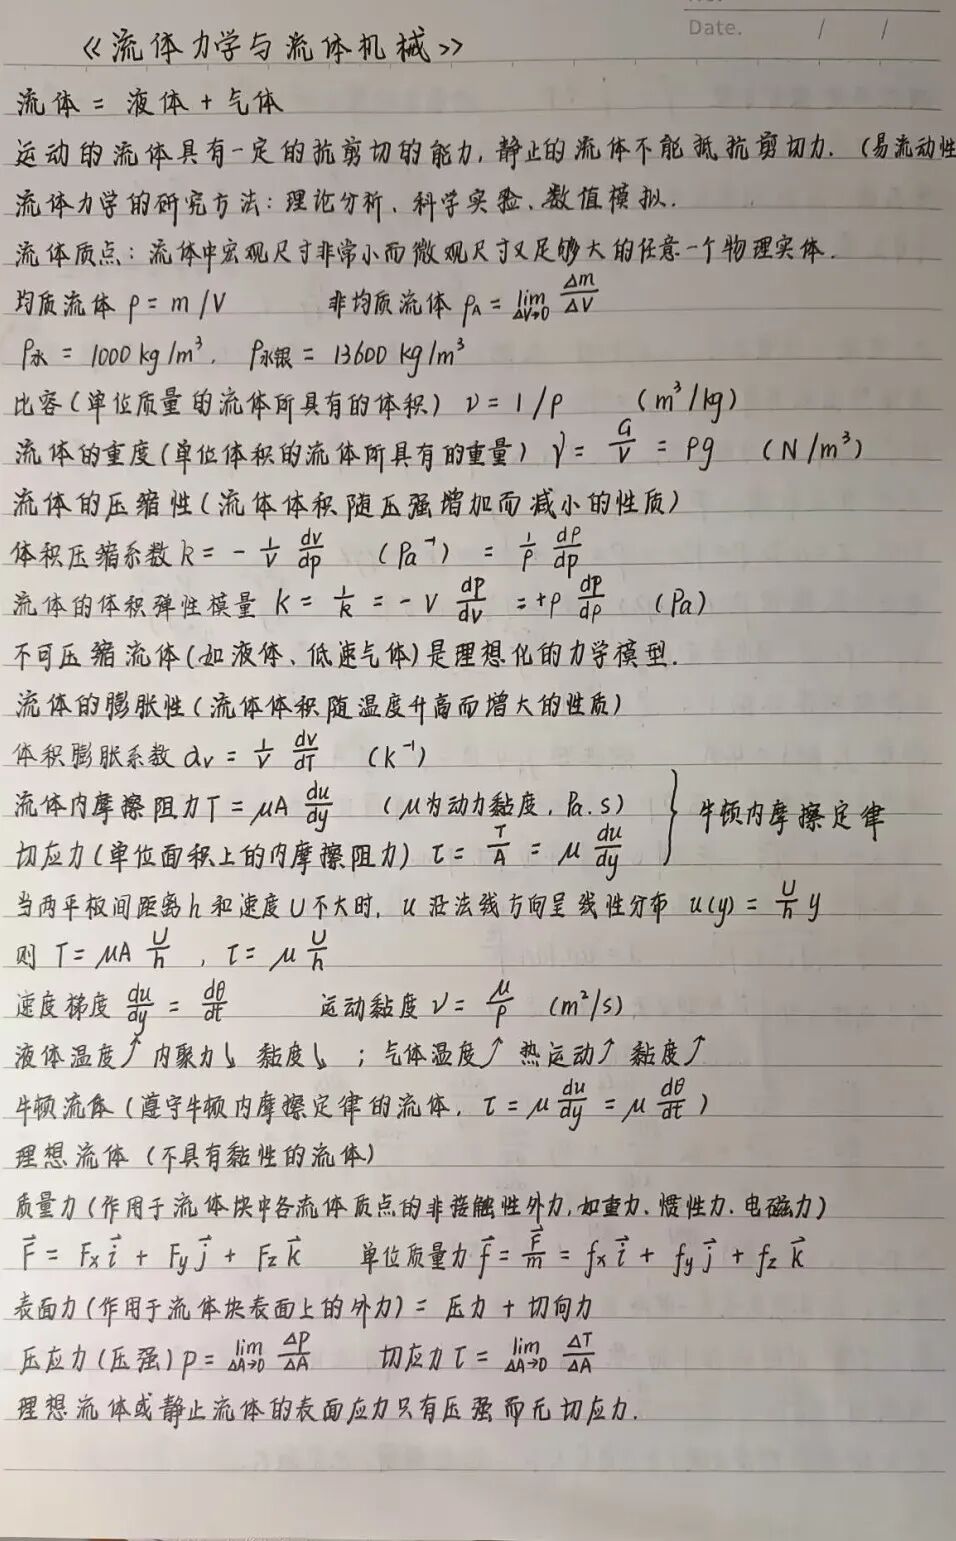 Date. / /
《流体力学与流体机械》
流体 = 液体 + 气体
运动的流体具有一定的抗剪切的能力,静止的流体不能抵抗剪切力. (易流动性
流体力学的研究方法: 理论分析、科学实验、数值模拟.
流体质点: 流体中宏观尺寸非常小而微观尺寸又足够大的任意一个物理实体.
均质流体 ρ = m/V 非均质流体 ρ_A = lim_{ΔV→0} Δm/ΔV
ρ水 = 1000 kg/m³. ρ水银 = 13600 kg/m³
比容(单位质量的流体所具有的体积) ν = 1/ρ (m³/kg)
流体的重度(单位体积的流体所具有的重量) γ = G/V = ρg (N/m³)
流体的压缩性(流体体积随压强增加而减小的性质)
体积压缩系数 k = - 1/V dv/dp (Pa⁻¹) = 1/ρ dρ/dp
流体的体积弹性模量 K = 1/k = - V dp/dv = +ρ dp/dρ (Pa)
不可压缩流体(如液体、低速气体)是理想化的力学模型.
流体的膨胀性(流体体积随温度升高而增大的性质)
体积膨胀系数 αv = 1/V dv/dT (k⁻¹)
流体内摩擦阻力T = μA du/dy (μ为动力黏度, Pa.s)
切应力(单位面积上的内摩擦阻力) τ = T/A = μ du/dy } 牛顿内摩擦定律
当两平板间距离h和速度U不大时, u沿法线方向呈线性分布 u(y) = U/h y
则 T = μA U/h , τ = μ U/h
速度梯度 du/dy = dθ/dt 运动黏度 ν = μ/ρ (m²/s)
液体温度↑ 内聚力↓ 黏度↓ ; 气体温度↑ 热运动↑ 黏度↑
牛顿流体 (遵守牛顿内摩擦定律的流体, τ = μ du/dy = μ dθ/dt )
理想流体 (不具有黏性的流体)
质量力(作用于流体块中各流体质点的非接触性外力,如重力、惯性力.电磁力)
F⃗ = Fx i⃗ + Fy j⃗ + Fz k⃗ 单位质量力 f⃗ = F⃗/m = fx i⃗ + fy j⃗ + fz k⃗
表面力(作用于流体块表面上的外力) = 压力 + 切向力
压应力(压强) p = lim_{ΔA→0} ΔP/ΔA 切应力 τ = lim_{ΔA→0} ΔT/ΔA
理想流体或静止流体的表面应力只有压强而无切应力.